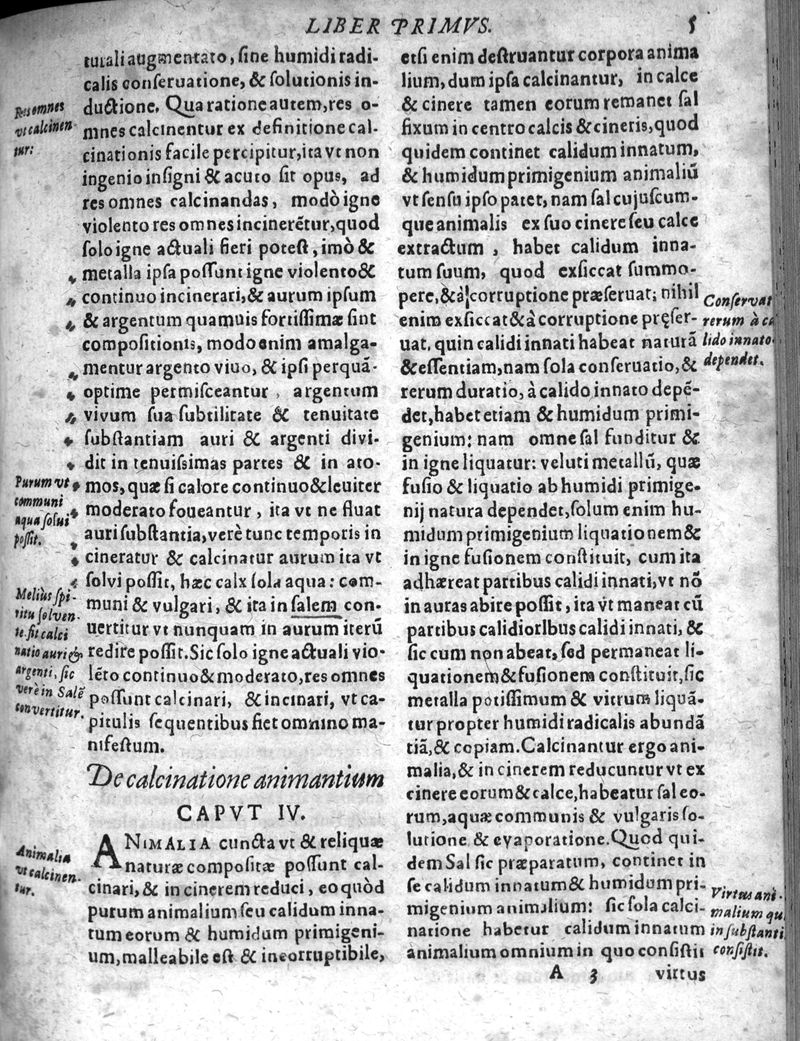 LIBER PRIMVS. 5
turali augmentato, sine humidi radi-
calis conseruatione, & solutionis in-
ductione. Qua ratione autem, res o-
mnes calcinentur ex definitione cal-
cinationis facile percipitur, ita vt non
ingenio insigni & acuto sit opus, ad
res omnes calcinandas, modò igne
violento res omnes incinerẽtur, quod
solo igne actuali fieri potest, imò &
metalla ipsa possunt igne violento &
continuo incinerari, & aurum ipsum
& argentum quamuis fortissimæ sint
compositionis, modo enim amalga-
mentur argento viuo, & ipsi perquã-
optime permisceantur, argentum
vivum sua subtilitate & tenuitate
substantiam auri & argenti divi-
dit in tenuissimas partes & in ato-
mos, quæ si calore continuo & leuiter
moderato foueantur, ita vt ne fluat
auri substantia, verè tunc temporis in
cineratur & calcinatur aurum ita vt
solvi possit, hæc calx sola aqua: com-
muni & vulgari, & ita in salem con-
uertitur vt nunquam in aurum iterũ
redire possit. Sic solo igne actuali vio-
lẽto continuo & moderato, res omnes
possunt calcinari, & incinari, vt ca-
pitulis sequentibus fiet omnino ma-
nifestum.
De calcinatione animantium
CAPVT IV.
ANIMALIA cuncta vt & reliquæ
naturæ compositæ possunt cal-
cinari, & in cinerem reduci, eo quòd
purum animalium seu calidum inna-
tum eorum & humidum primigeni-
um, malleabile est & incorruptibile,
Res omnes
vt calcinen-
tur:
Purum vt
communi
aqua solui
possit.
Melius spi-
ritu solven-
te fit calci
natio auri &
argenti, sic
verè in Salẽ
convertitur.
Animalia
vt calcinen-
tur.
etsi enim destruantur corpora anima
lium, dum ipsa calcinantur, in calce
& cinere tamen eorum remanet sal
fixum in centro calcis & cineris, quod
quidem continet calidum innatum,
& humidum primigenium animaliũ
vt sensu ipso patet, nam sal cujuscum-
que animalis ex suo cinere seu calce
extractum, habet calidum inna-
tum suum, quod exsiccat summo-
pere, & à corruptione præseruat; nihil
enim exsiccat & à corruptione pręser-
uat, quin calidi innati habeat naturã
& essentiam, nam sola conseruatio, &
rerum duratio, à calido innato depẽ-
det, habet etiam & humidum primi-
genium: nam omne sal funditur &
in igne liquatur: veluti metallũ, quæ
fusio & liquatio ab humidi primige-
nij natura dependet, solum enim hu-
midum primigenium liquationem &
in igne fusionem constituit, cum ita
adhæreat partibus calidi innati, vt nõ
in auras abire possit, ita vt maneat cũ
partibus calidioribus calidi innati, &
sic cum non abeat, sed permaneat li-
quationem & fusionem constituit, sic
metalla potissimum & vitrum liquã-
tur propter humidi radicalis abundã
tiã, & copiam. Calcinantur ergo ani-
malia, & in cinerem reducuntur vt ex
cinere eorum & calce, habeatur sal eo-
rum, aquæ communis & vulgaris so-
lutione & evaporatione. Quod qui-
dem Sal sic præparatum, continet in
se calidum innatum & humidum pri-
migenium animalium: sic sola calci-
natione habetur calidum innatum
animalium omnium in quo consistit
Conservat
rerum à ca
lido innato
dependet.
Virtus ani-
malium qu
in substanti
consistit.
A 3 virtus